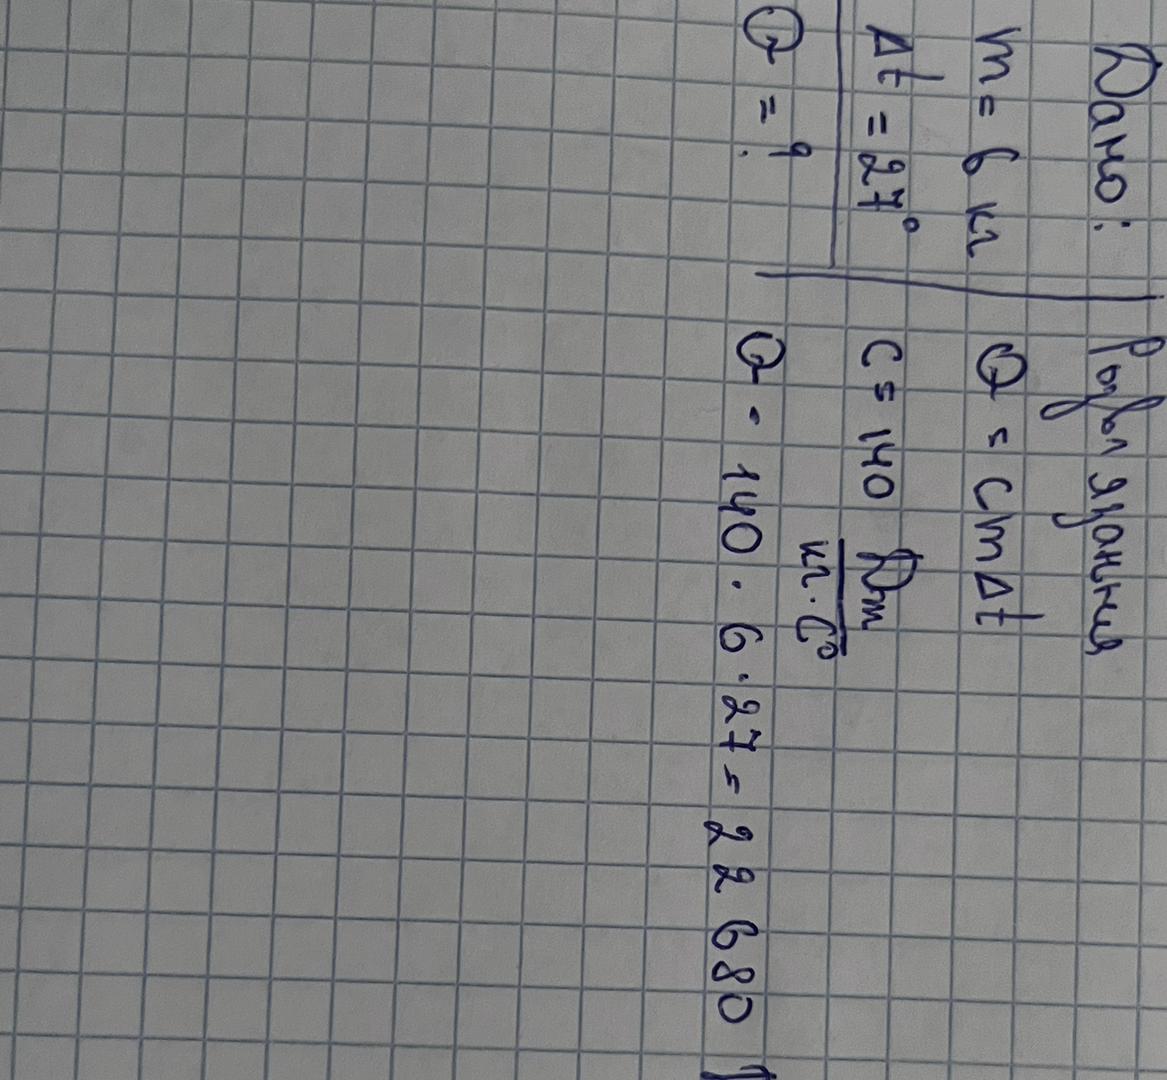 Дано:
m = 6 кг
Δt = 27°
Q = ?
Розв'язання
Q = cmΔt
C = 140 Дж / кг·C°
Q = 140 · 6 · 27 = 22 680